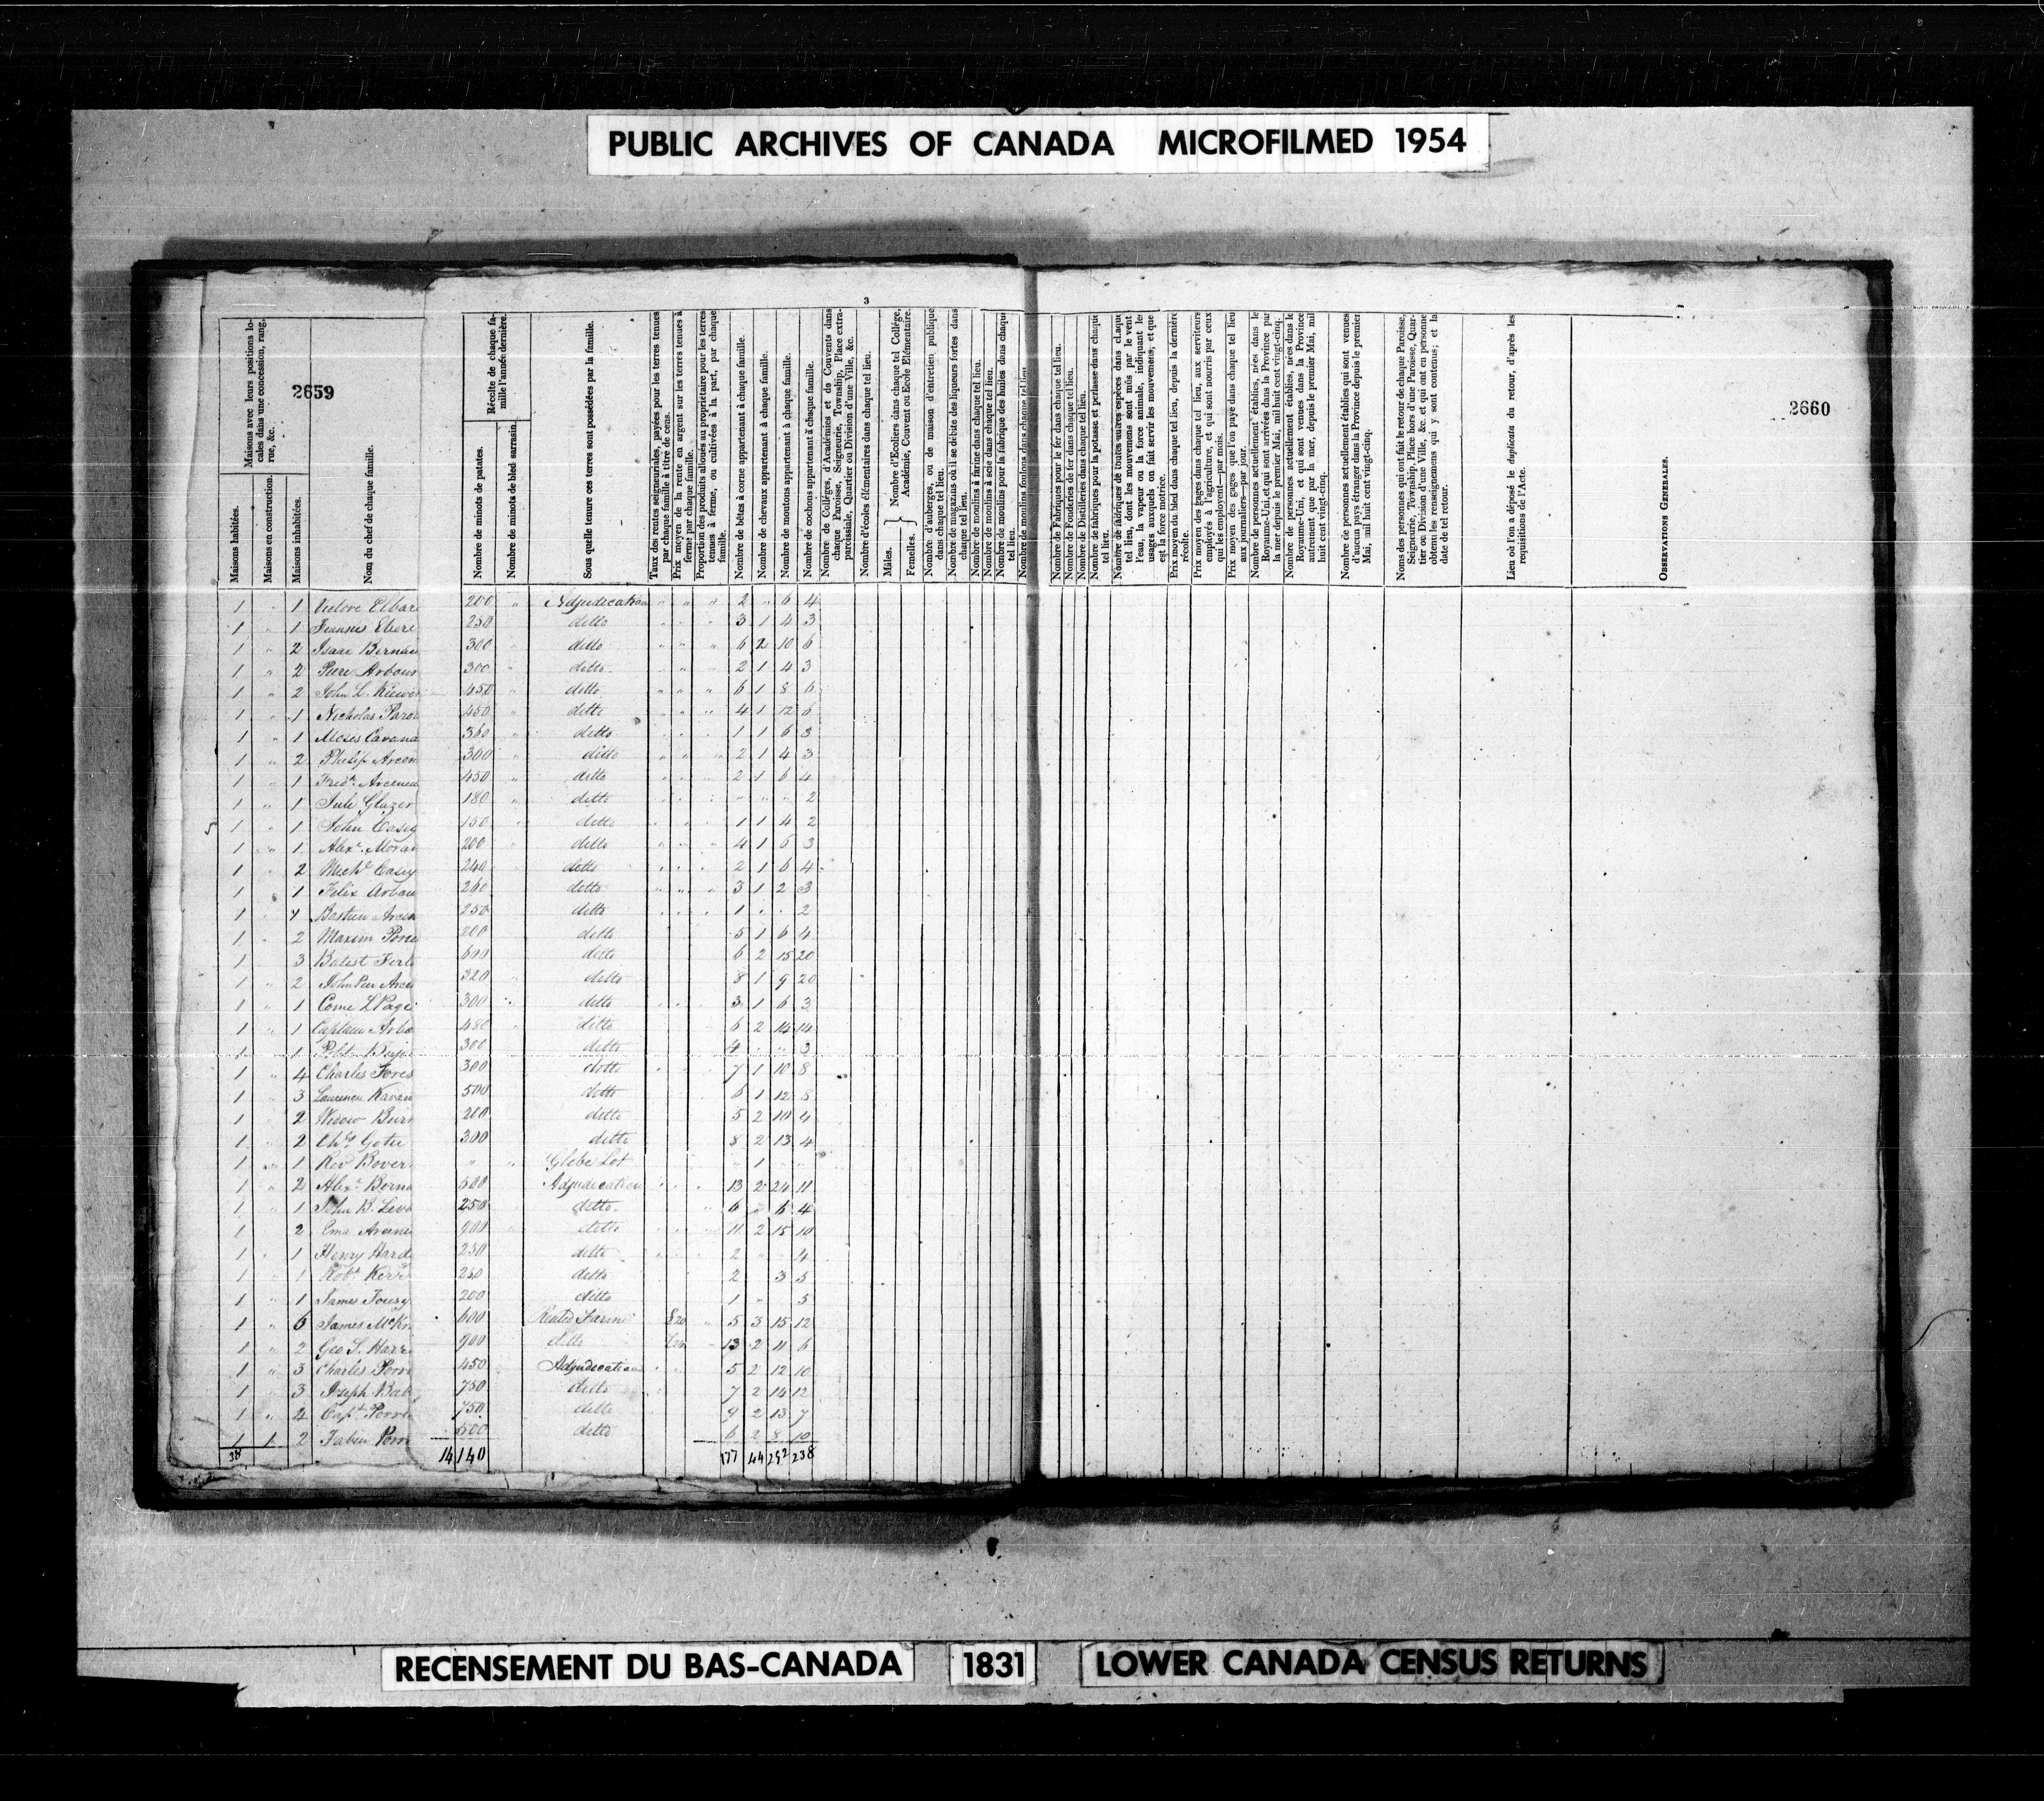 PUBLIC ARCHIVES OF CANADA MICROFILMED 1954
3
2659
2660
Maisons avec leurs positions locales dans une concession, rang, rue, &c.
Maisons habitées.
Maisons en construction.
Maisons inhabitées.
Nom du chef de chaque famille.
Récolte de chaque famille l'année dernière.
Nombre de minots de patates.
Nombre de minots de bled sarrasin.
Sous quelle tenure ces terres sont possédées par la famille.
Taux des rentes seigneuriales, payées pour les terres tenues par chaque famille à titre de cens.
Prix moyen de la rente en argent sur les terres tenues à ferme par chaque famille.
Proportion des produits alloués au propriétaire pour les terres tenues à ferme, ou cultivées à la part, par chaque famille.
Nombre de bêtes à corne appartenant à chaque famille.
Nombre de chevaux appartenant à chaque famille.
Nombre de moutons appartenant à chaque famille.
Nombre de cochons appartenant à chaque famille.
Nombre de Colléges, d'Académies et de Couvents dans chaque Paroisse, Seigneurie, Township, Place extra-paroissiale, Quartier ou Division d'une Ville, &c.
Nombre d'écoles élémentaires dans chaque tel lieu.
Mâles. Femelles. Nombre d'Ecoliers dans chaque tel Collége, Académie, Couvent ou Ecole Elémentaire.
Nombre d'auberges, ou de maison d'entretien publique dans chaque tel lieu.
Nombre de magazins où il se débite des liqueurs fortes dans chaque tel lieu.
Nombre de moulins à farine dans chaque tel lieu.
Nombre de moulins à scie dans chaque tel lieu.
Nombre de moulins pour la fabrique des huiles dans chaque tel lieu.
Nombre de moulins foulons dans chaque tel lieu.
Nombre de Fabriques pour le fer dans chaque tel lieu.
Nombre de Fonderies de fer dans chaque tel lieu.
Nombre de Distilleries dans chaque tel lieu.
Nombre de fabriques pour la potasse et perlasse dans chaque tel lieu.
Nombre de fabriques de toutes autres espèces dans chaque tel lieu, dont les mouvemens sont mûs par le vent l'eau, la vapeur ou la force animale, indiquant les usages auxquels on fait servir les mouvemens, et que est la force motrice.
Prix moyen du bled dans chaque tel lieu, depuis la dernière récolte.
Prix moyen des gages dans chaque tel lieu, aux serviteurs employés à l'agriculture, et qui sont nourris par ceux qui les employent—par mois.
Prix moyen des gages que l'on paye dans chaque tel lieu aux journaliers—par jour.
Nombre de personnes actuellement établies, nées dans le Royaume-Uni, et qui sont arrivées dans la Province par la mer depuis le premier Mai, mil huit cent vingt-cinq.
Nombre de personnes actuellement établies, nées dans le Royaume-Uni, et qui sont venues dans la Province autrement que par la mer, depuis le premier Mai, mil huit cent vingt-cinq.
Nombre de personnes actuellement établies qui sont venues d'aucun pays étranger dans la Province depuis le premier Mai, mil huit cent vingt-cinq.
Noms des personnes qui ont fait le retour de chaque Paroisse, Seigneurie, Township, Place hors d'une Paroisse, Quartier ou Division d'une Ville, &c. et qui ont en personne obtenu les renseignemens qui y sont contenus; et la date de tel retour.
Lieu où l'on a déposé le duplicata du retour, d'après les requisitions de l'Acte.
OBSERVATIONS GENERALES.
1 " 1 200 " Adjudication " " " 2 " 6 4
1 " 1 250 ditto 3 1 4 3
1 " 2 Isaac 300 ditto 6 2 10 6
1 " 2 Arbour 300 ditto 2 1 4 3
1 " 2 John L. 450 ditto 6 1 8 6
1 " 1 Nicholas 450 ditto 4 1 12 6
1 " 1 Moses Cavana 360 ditto 1 1 6 3
1 " 2 Philip Arcen 300 ditto 2 1 4 3
1 " 1 Fredk. Arcenea 450 ditto 2 1 6 4
1 " 1 Glazer 180 ditto " " " 2
1 " 1 John Casey 150 ditto 1 1 4 2
1 " 1 Alexr. Moran 200 ditto 4 1 6 3
1 " 2 Michl Casey 240 ditto 2 1 6 4
1 " 1 Felix Arbou 260 ditto 3 1 2 3
1 Bastien Arcen 250 ditto 1 " " 2
1 " 2 Maxim 200 ditto 5 1 6 4
1 3 Batist 600 ditto 6 2 15 20
1 " 2 320 ditto 8 1 9 20
1 " 1 Come L Page 300 ditto 3 1 6 3
1 " 1 Captain Arbo 480 ditto 6 2 14 14
1 1 300 ditto 4 " " 3
1 " 4 Charles Fores 300 ditto 7 1 10 8
1 " 3 Laurence Kavan 500 ditto 6 1 12 8
1 2 Widow 200 ditto 5 2 10 4
1 " 2 Chs 300 ditto 8 2 13 4
1 " 1 Revd Bover " " Glebe Lot " 1
1 " 2 Alexr. Berna 600 Adjudication 13 2 24 11
1 " 1 John B. 250 ditto 6 " 6 4
1 2 900 ditto 11 2 15 10
1 " 1 Henry Harde 250 ditto 2 " 4
1 " 1 Robt Kerr 250 ditto 2 3 5
1 " 1 James 200 ditto 1 " 5
1 " 6 James McKn 600 Rented Farm 5 3 15 12
1 " 2 Geo S. Harr 900 ditto 13 2 11 6
1 " 3 Charles 450 Adjudication 5 2 12 10
1 " 3 Joseph Bab 750 ditto 7 2 14 12
1 " 4 Capt. 750 ditto 9 2 13 7
1 1 2 Fabien 600 ditto 6 2 8 10
38 14140 177 44 292 238
RECENSEMENT DU BAS-CANADA 1831 LOWER CANADA CENSUS RETURNS